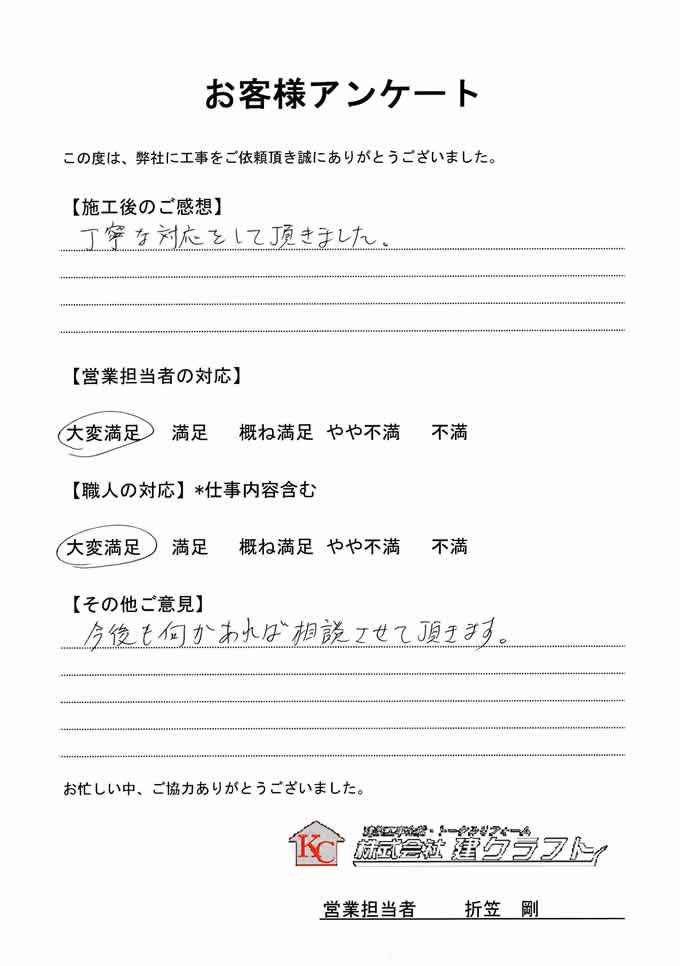 お客様アンケート
この度は、弊社に工事をご依頼頂き誠にありがとうございました。
【施工後のご感想】
丁寧な対応をして頂きました。
【営業担当者の対応】
大変満足 満足 概ね満足 やや不満 不満
【職人の対応】*仕事内容含む
大変満足 満足 概ね満足 やや不満 不満
【その他ご意見】
今後も何かあれば相談させて頂きます。
お忙しい中、ご協力ありがとうございました。
トータルリフォーム
KC 株式会社 建クラフト
営業担当者 折笠 剛